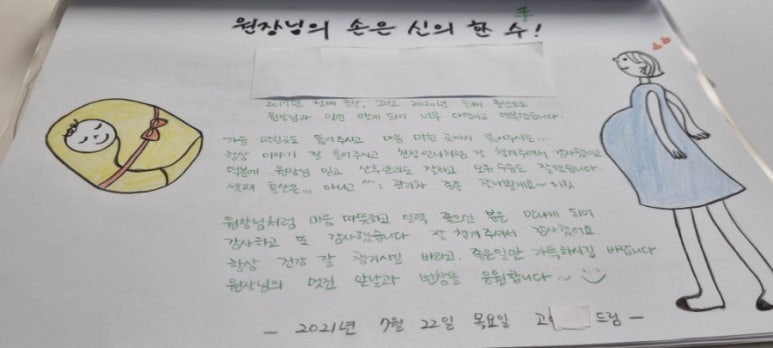 원장님의 손은 신의 한 수! 手
2019년 첫째 출산, 그리고 2020년 둘째 출산으로
원장님과 인연 맺게 되어 너무 다행이고 행복했습니다.
가슴 막힌곳도 뚫어주시고 마음 막힌 곳까지 뚫어주시는...
항상 이야기 잘 들어주시고 친정언니처럼 잘 챙겨주셔서 감사했어요
덕분에 원장님 믿고 산후관리도 잘하고 모유수유도 잘했습니다
셋째 출산은... 아니고 ^^; 관리차 종종 찾아뵐게요~
원장님처럼 마음 따뜻하고 실력 좋으신 분을 만나게 되어
감사하고 또 감사했습니다 잘 챙겨주셔서 감사했어요
항상 건강 잘 챙기시길 바라고, 좋은일만 가득하시길 바랍니다.
원장님의 멋진 앞날과 번창을 응원합니다~
- 2021년 7월 22일 목요일 고 드림 -